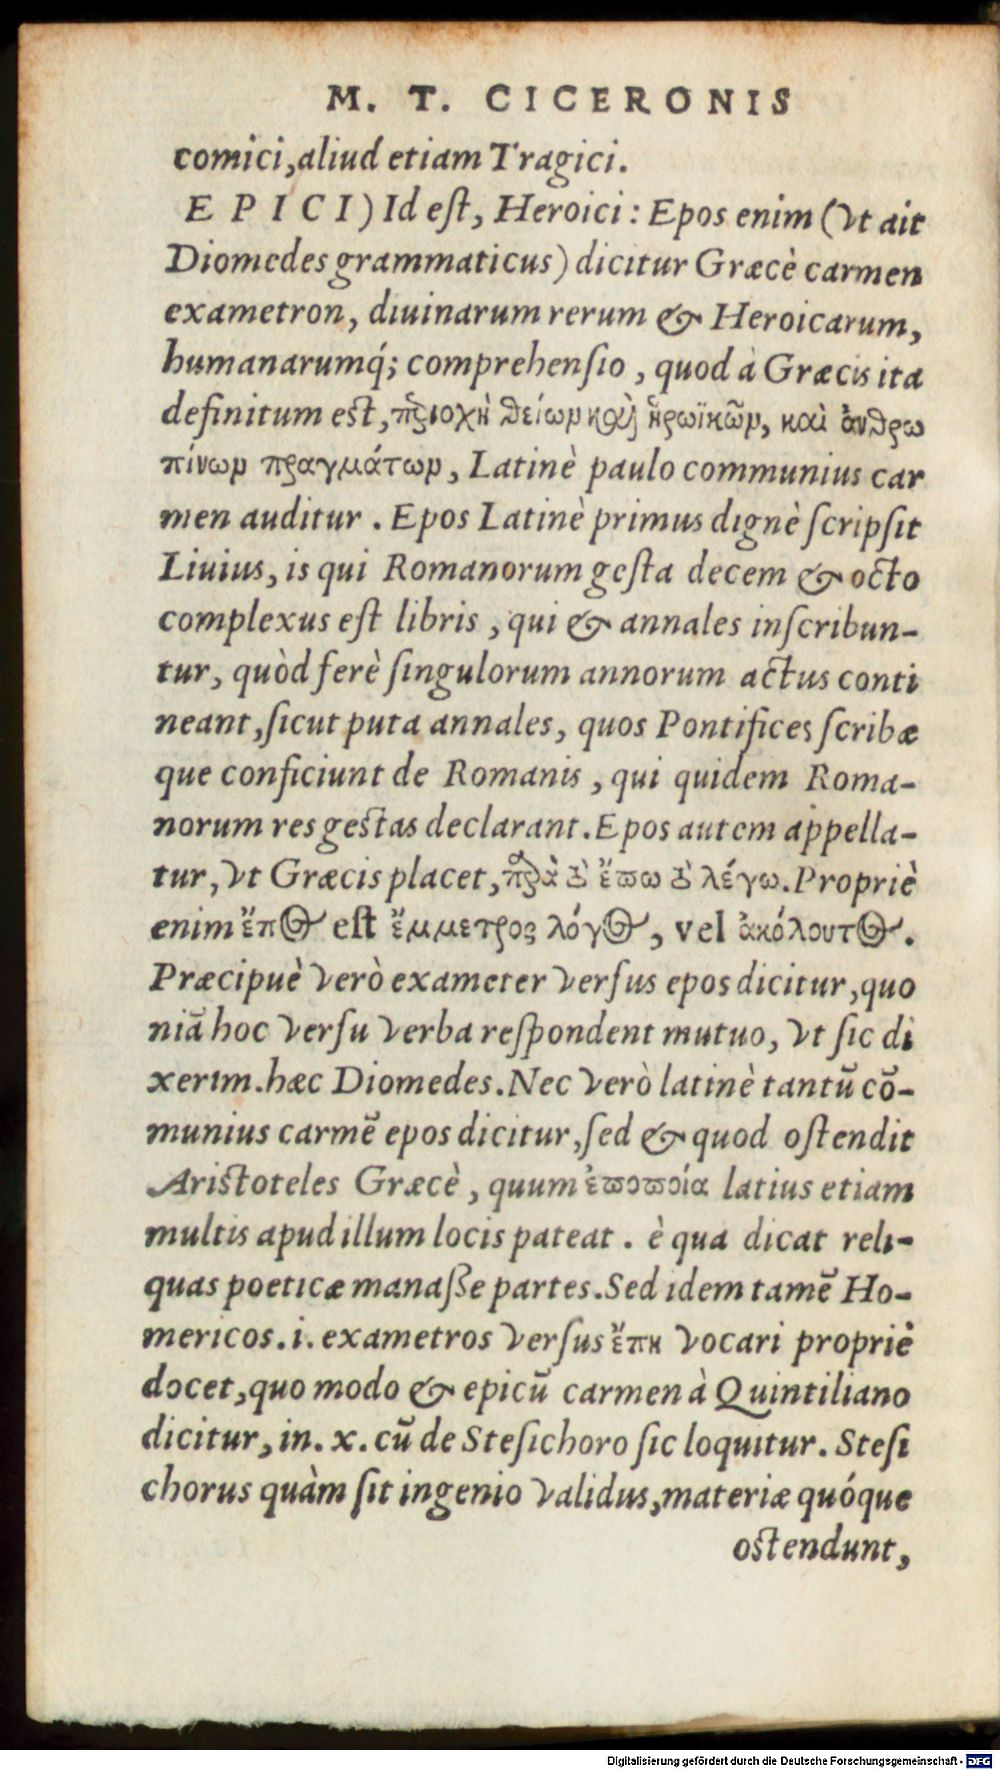 M. T. CICERONIS
comici, aliud etiam Tragici.
EPICI) Id eſt, Heroici: Epos enim (vt ait
Diomedes grammaticus) dicitur Græcè carmen
exametron, diuinarum rerum & Heroicarum,
humanarumq́; comprehenſio, quod à Græcis ita
definitum est, περιοχὴ θείων καὶ ἡρωϊκῶν, καὶ ἀνθρω
πίνων πραγμάτων, Latinè paulo communius car
men auditur. Epos Latinè primus dignè ſcripſit
Liuius, is qui Romanorum geſta decem & octo
complexus eſt libris, qui & annales inſcribun-
tur, quòd ferè ſingulorum annorum actus conti
neant, ſicut puta annales, quos Pontifices ſcribæ
que conficiunt de Romanis, qui quidem Roma-
norum res gestas declarant. Epos autem appella-
tur, vt Græcis placet, παρὰ τὸ ἔπω τὸ λέγω. Propriè
enim ἔπος est ἔμμετρος λόγος, vel ἀκόλουτος.
Præcipuè verò exameter verſus epos dicitur, quo
niā hoc verſu verba reſpondent mutuo, vt ſic di
xerim. hæc Diomedes. Nec verò latinè tantū cō-
munius carmē epos dicitur, ſed & quod oſtendit
Aristoteles Græcè, quum ἐποποιία latius etiam
multis apud illum locis pateat. è qua dicat reli-
quas poeticæ manaſſe partes. Sed idem tamē Ho-
mericos. i. exametros verſus ἔπη vocari propriè
docet, quo modo & epicū carmen à Quintiliano
dicitur, in. x. cū de Steſichoro ſic loquitur. Steſi
chorus quàm ſit ingenio validus, materiæ quóque
ostendunt,
Digitalisierung gefördert durch die Deutsche Forschungsgemeinschaft - DFG